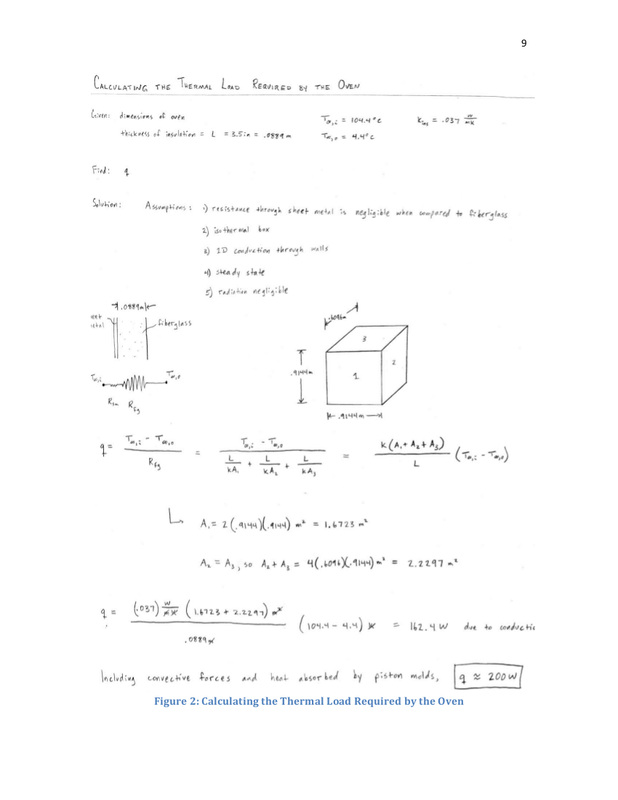 9
CALCULATING THE THERMAL LOAD REQUIRED BY THE OVEN
Given: dimensions of oven T∞,i = 104.4°C kins = .037 W/mK
thickness of insulation = L = 3.5in = .0889m T∞,o = 4.4°C
Find: q
Solution: Assumptions: 1) resistance through sheet metal is negligible when compared to fiberglass
2) isothermal box
3) 1D conduction through walls
4) steady state
5) radiation negligible
.0889m
fiberglass
.6096m
3
.9144m 1 2
T∞,i T∞,o
Rsm Rfg
.9144m
q = (T∞,i - T∞,o) / Rfg = (T∞,i - T∞,o) / (L/kA1 + L/kA2 + L/kA3) = k(A1 + A2 + A3) / L (T∞,i - T∞,o)
A1 = 2(.9144)(.9144) m² = 1.6723 m²
A2 = A3, so A2 + A3 = 4(.6096)(.9144) m² = 2.2297 m²
q = (.037) W/mK (1.6723 + 2.2297) m² / .0889m (104.4 - 4.4) K = 162.4 W due to conductio
Including convective forces and heat absorbed by piston molds, q ≈ 200W
Figure 2: Calculating the Thermal Load Required by the Oven